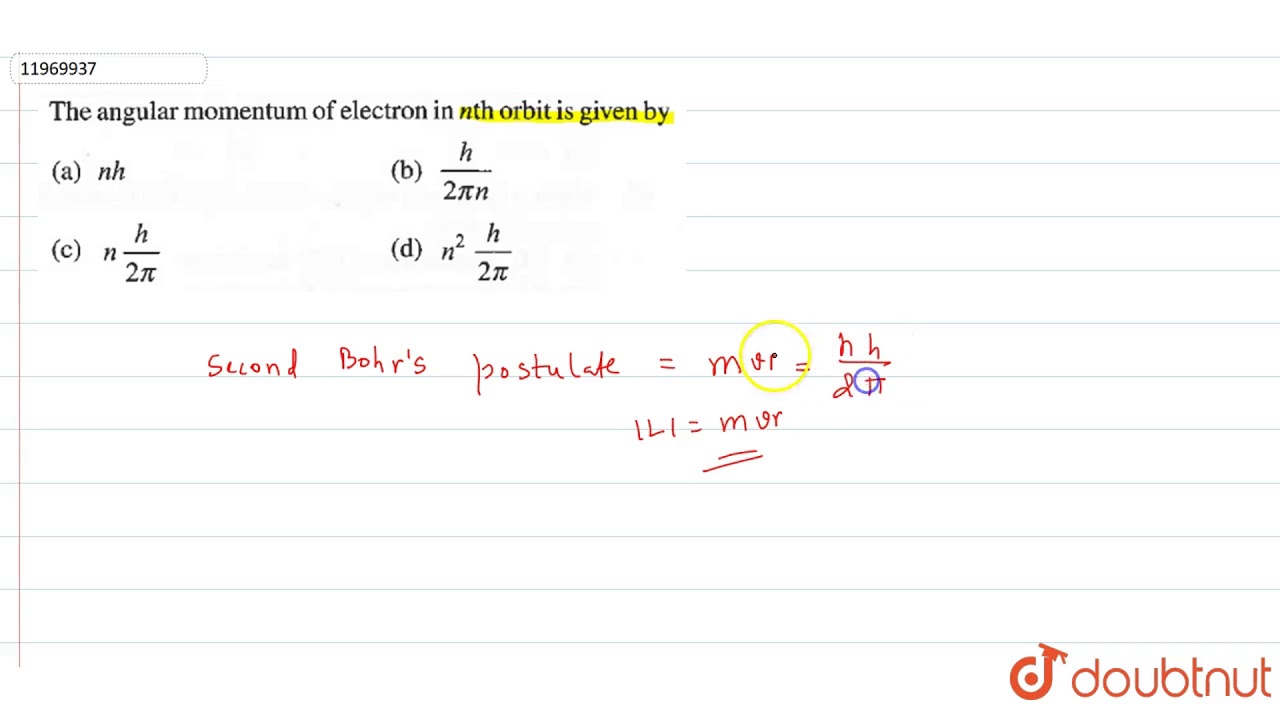 11969937
The angular momentum of electron in nth orbit is given by
(a) nh (b) h/2πn
(c) n h/2π (d) n² h/2π
Second Bohr's postulate = mvr = nh/2π
|L| = mvr
doubtnut